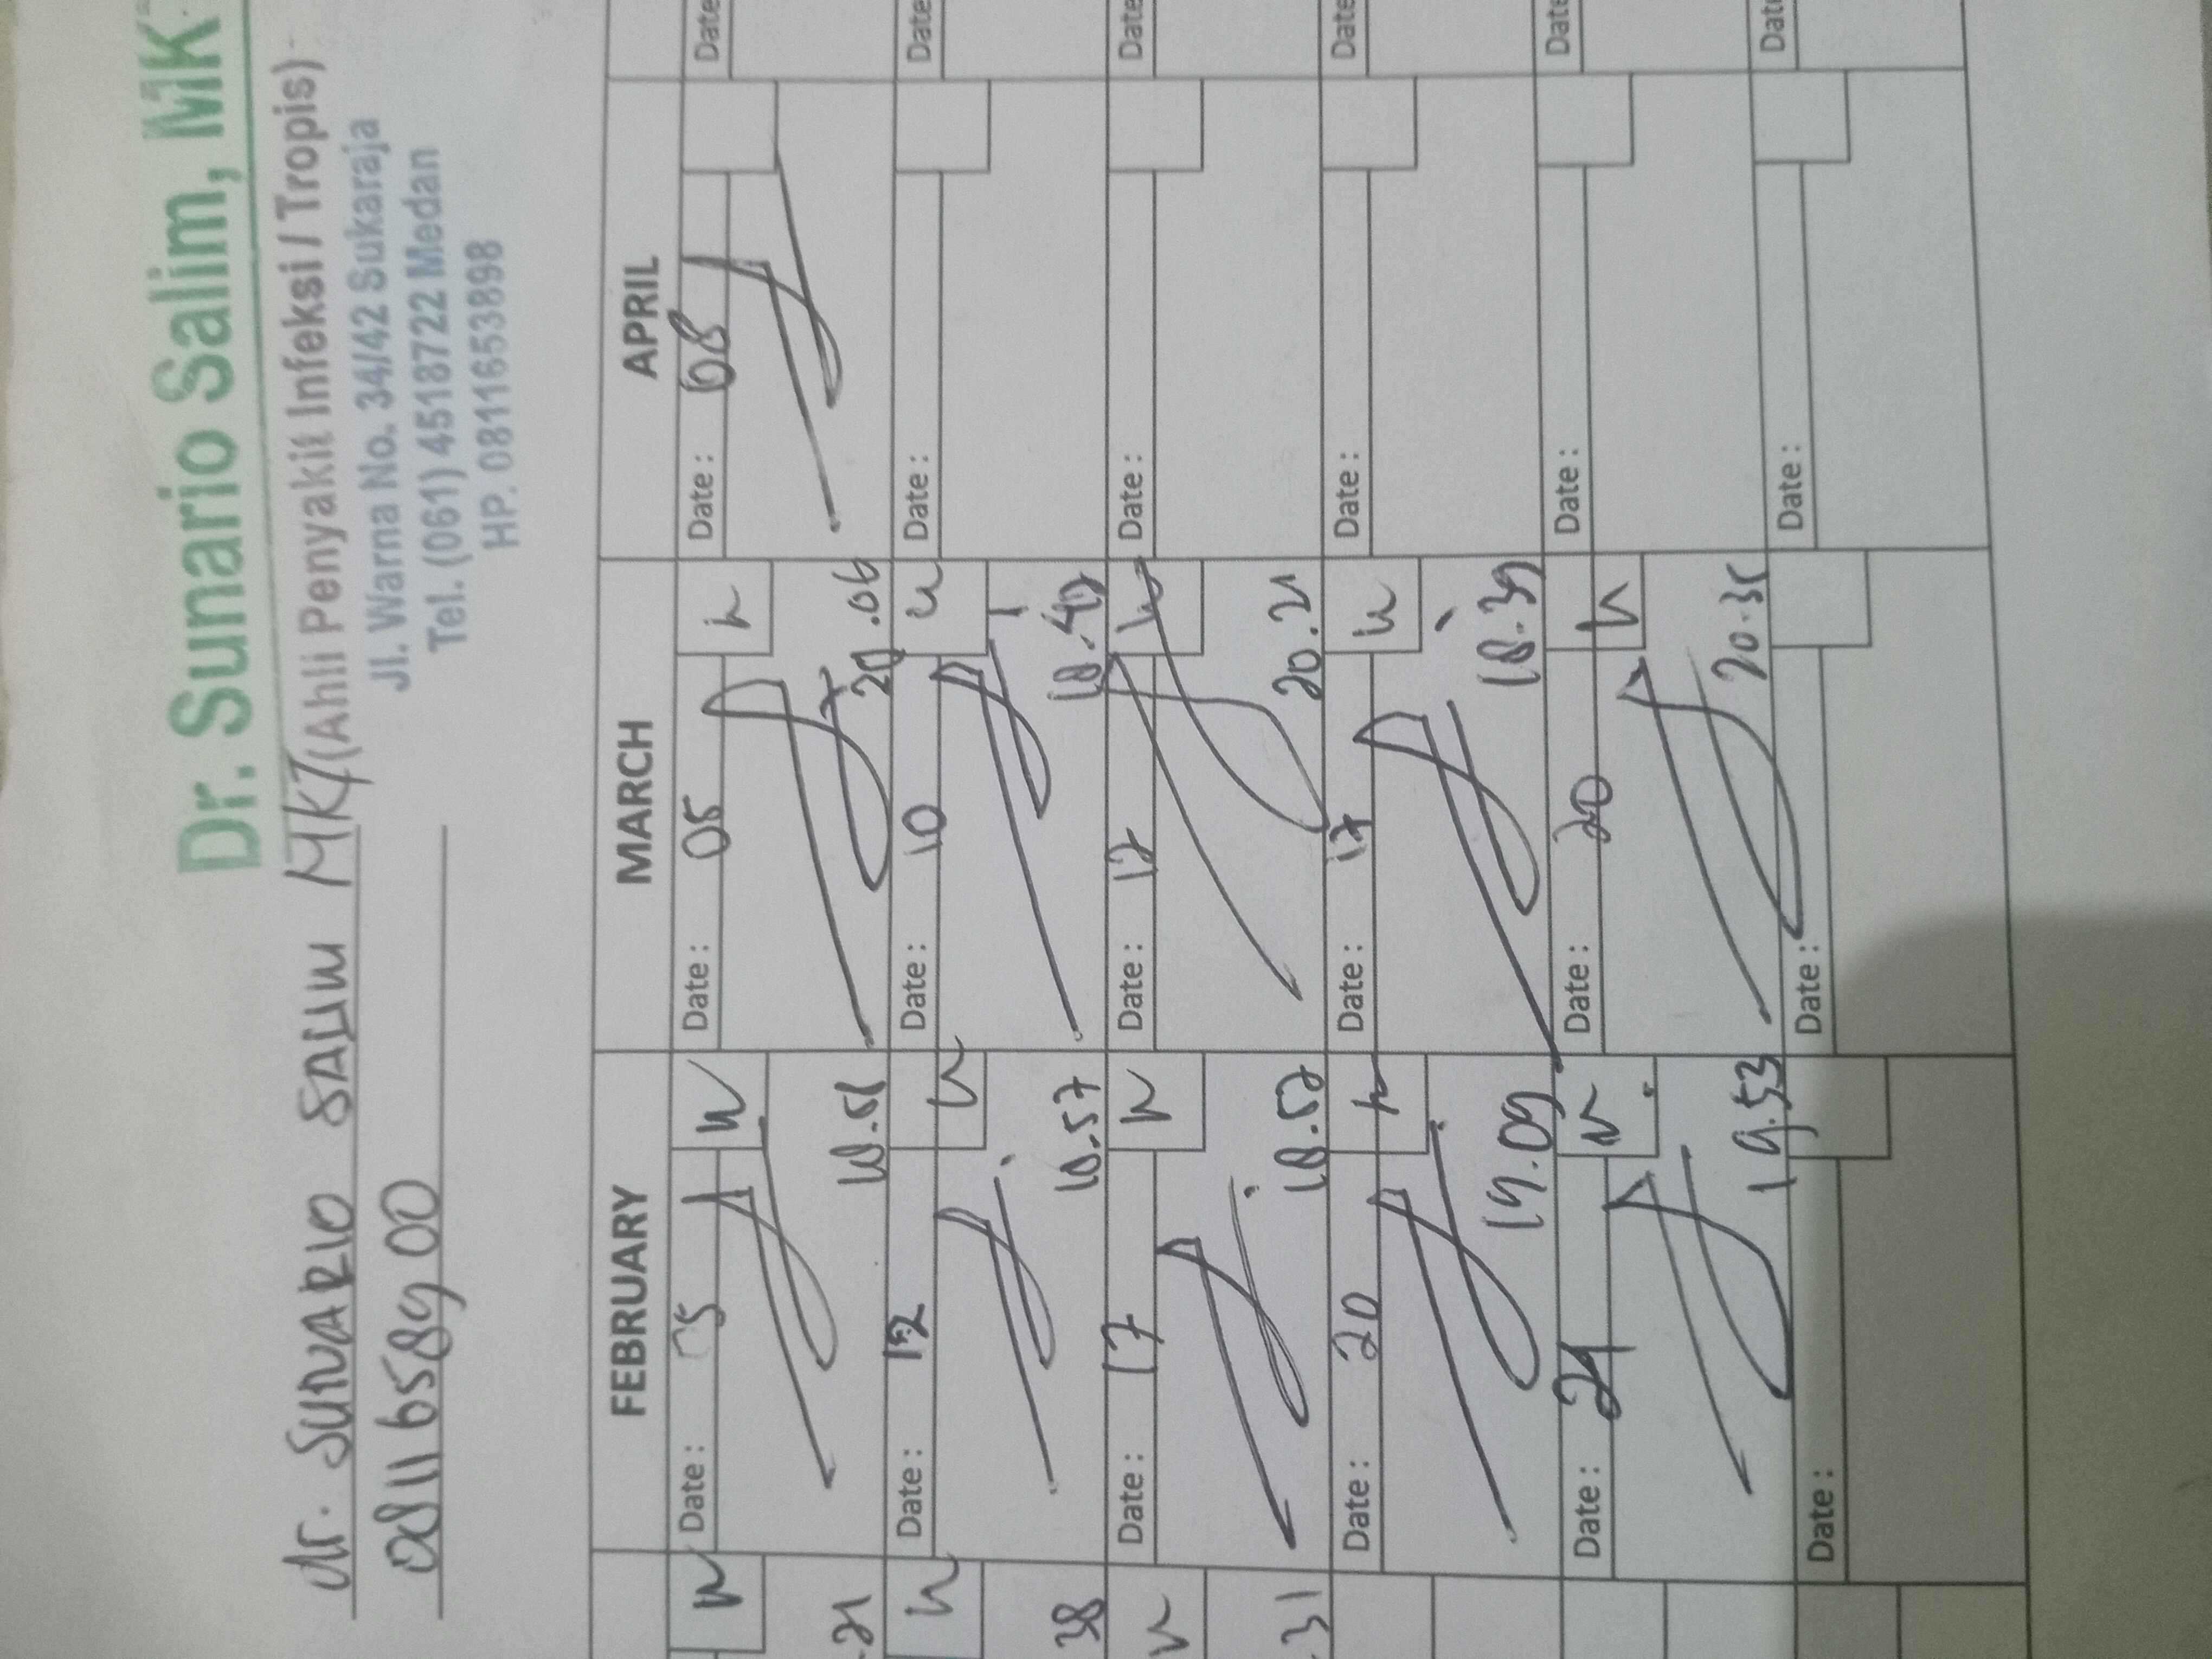 Dr. Sunario Salim, MK
(Ahli Penyakit Infeksi / Tropis)
Jl. Warna No. 34/42 Sukaraja
Tel. (061) 4518722 Medan
HP. 0811653898
dr. SUNARIO SALIM MKT
0811658900
FEBRUARY MARCH APRIL
Date: 05 Date: 05 Date: 08 Date
20.06
Date: 12 Date: 10 Date: Date
38 18.57 18.47
Date: 17 Date: 12 Date: Date
31 18.52 20.21
Date: 20 Date: 17 Date: Date
19.09 18.39
Date: 24 Date: 20 Date: Date
19.53 20.35
Date: Date: Date: Date